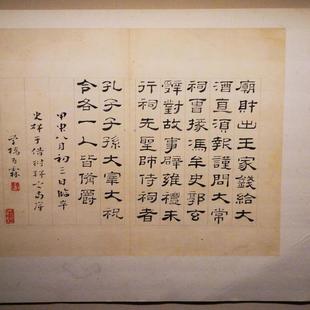 廟財出王家錢給大
酒直須報謹問大常
祠曹掾馮牟史郭玄
辭對故事辟雍禮未
行祠先聖師侍祠者
孔子子孫大宰大祝
令各一人皆備爵
甲申八月初三日臨